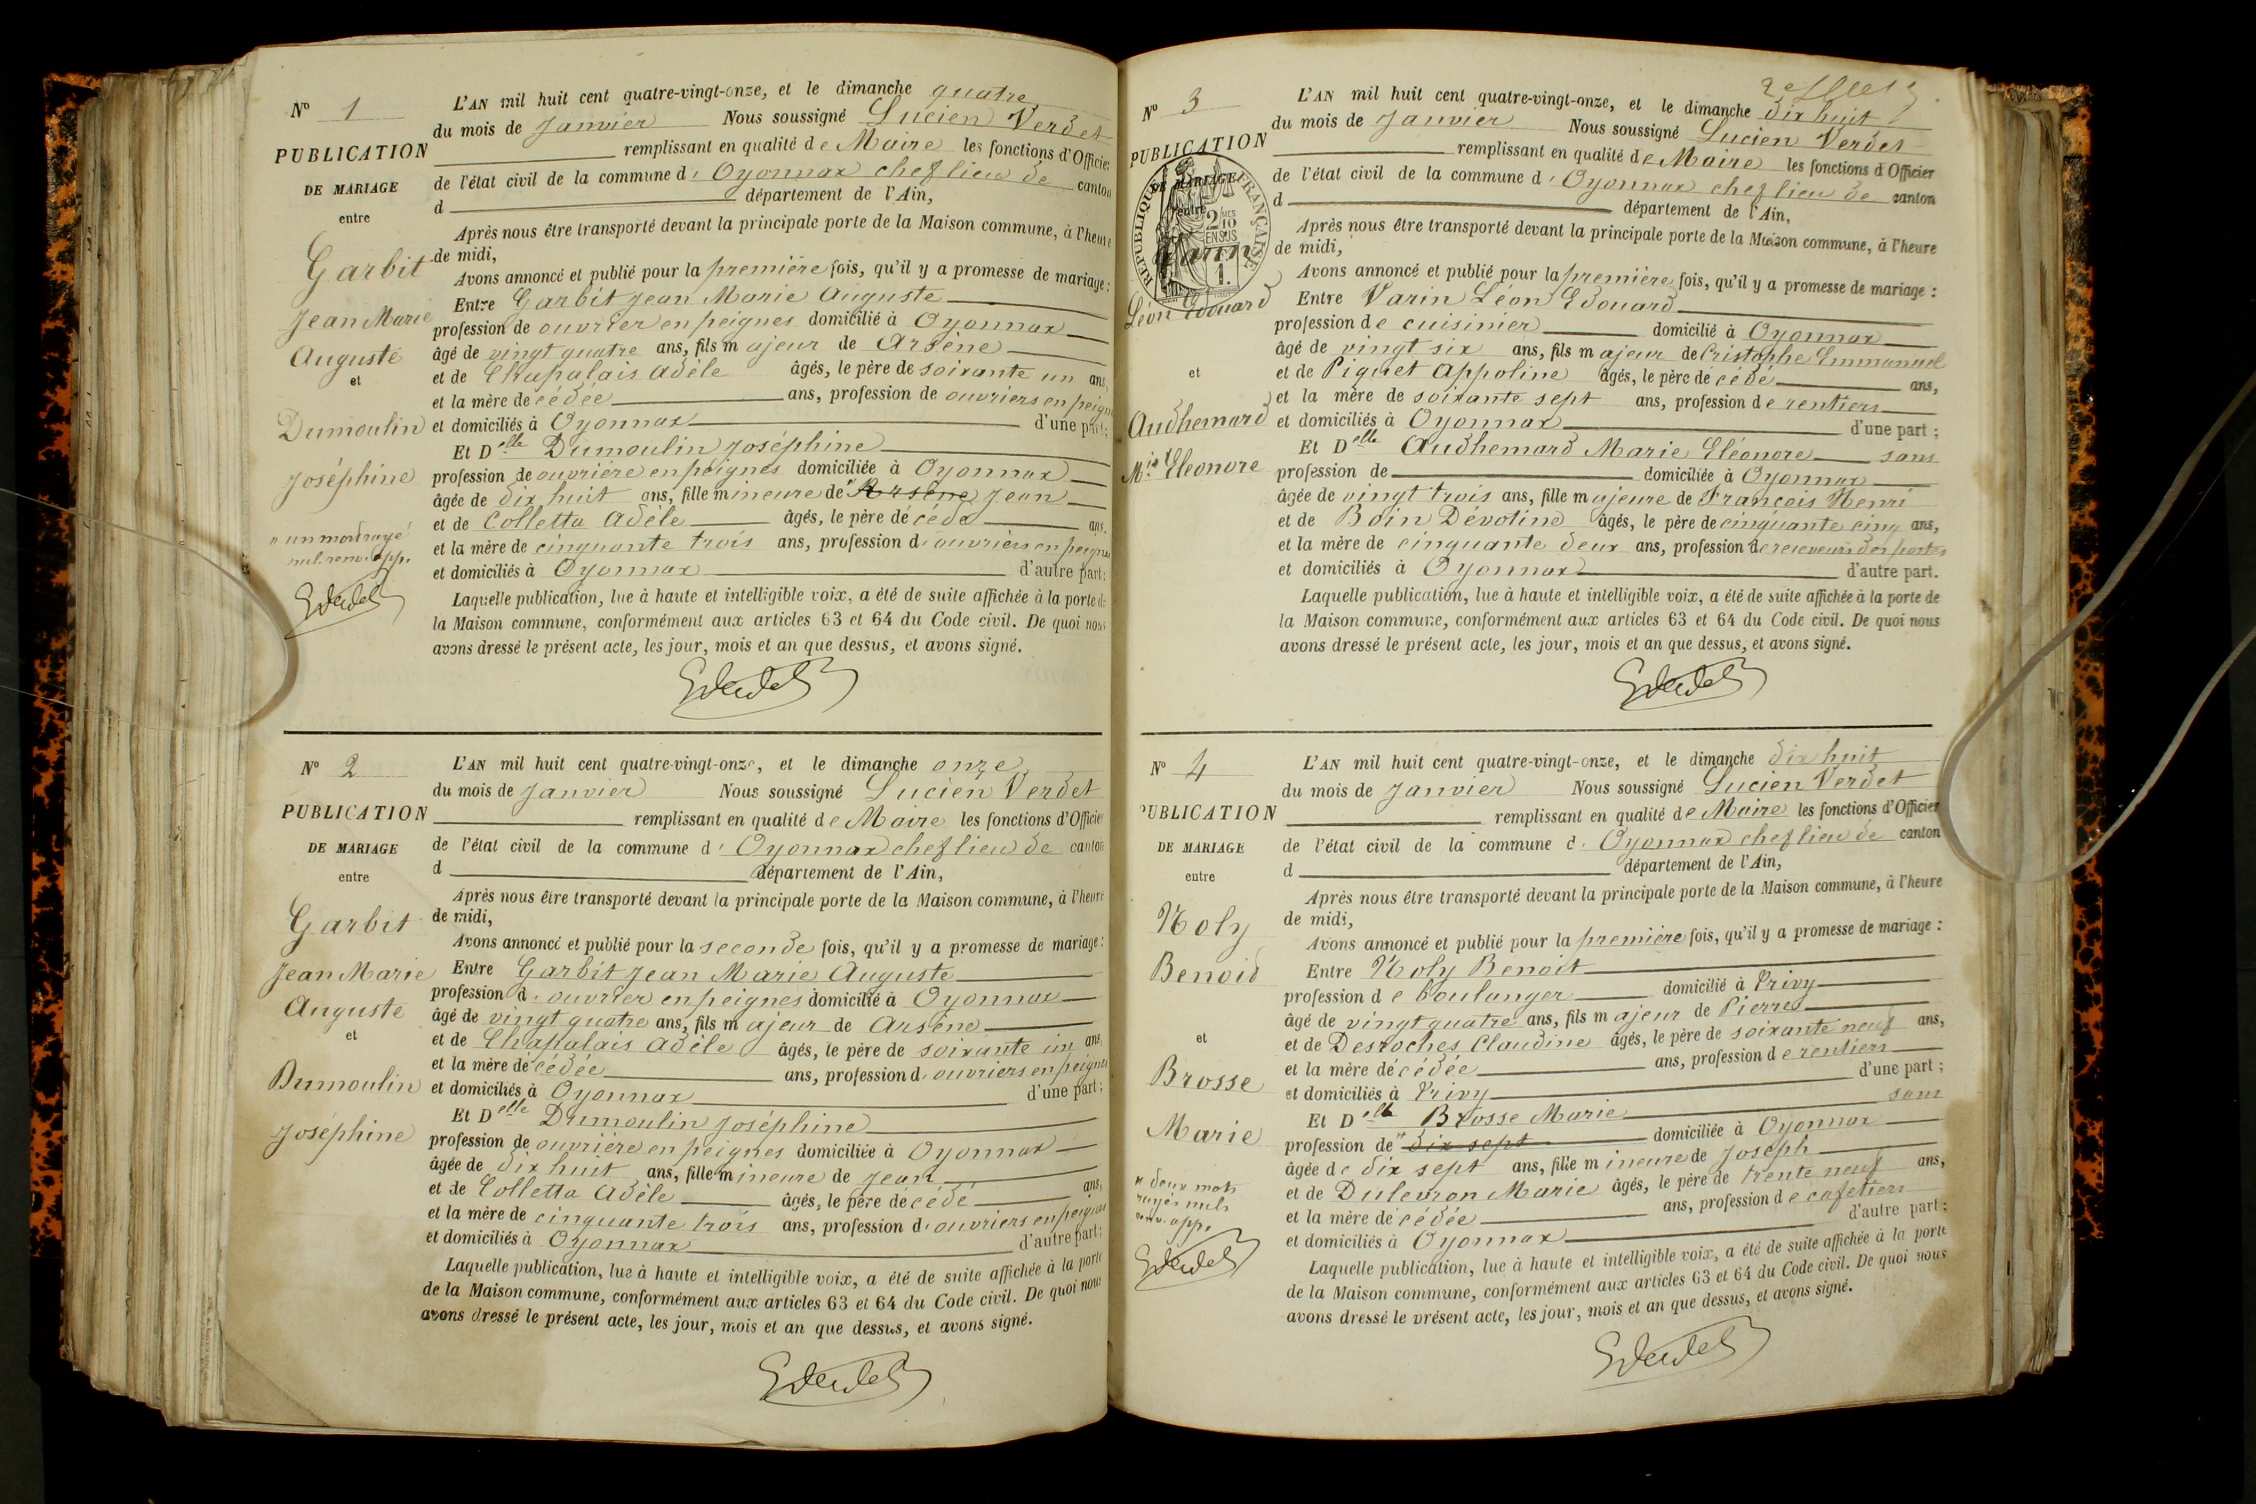 N° 1
PUBLICATION
DE MARIAGE
entre
Garbit
Jean Marie
Auguste
et
Dumoulin
Joséphine
un mot rayé
nul. renv. app.
L'AN mil huit cent quatre-vingt-onze, et le dimanche quatre
du mois de Janvier Nous soussigné Lucien Verdet
remplissant en qualité de Maire les fonctions d'Officier
de l'état civil de la commune d'Oyonnax chef lieu de canton
d département de l'Ain,
Après nous être transporté devant la principale porte de la Maison commune, à l'heure
de midi,
Avons annoncé et publié pour la première fois, qu'il y a promesse de mariage :
Entre Garbit Jean Marie Auguste
profession de ouvrier en peignes domicilié à Oyonnax
âgé de vingt quatre ans, fils majeur de Arsène
et de Chapalais Adèle âgés, le père de soixante un ans,
et la mère décédée ans, profession de ouvriers en peignes
et domiciliés à Oyonnax d'une part;
Et Delle Dumoulin Joséphine
profession de ouvrière en peignes domiciliée à Oyonnax
âgée de dix huit ans, fille mineure de Arsène Jean
et de Colletta Adèle âgés, le père décédé ans,
et la mère de cinquante trois ans, profession d'ouvriers en peignes
et domiciliés à Oyonnax d'autre part;
Laquelle publication, lue à haute et intelligible voix, a été de suite affichée à la porte de
la Maison commune, conformément aux articles 63 et 64 du Code civil. De quoi nous
avons dressé le présent acte, les jour, mois et an que dessus, et avons signé.
N° 2
PUBLICATION
DE MARIAGE
entre
Garbit
Jean Marie
Auguste
et
Dumoulin
Joséphine
L'AN mil huit cent quatre-vingt-onze, et le dimanche onze
du mois de Janvier Nous soussigné Lucien Verdet
remplissant en qualité de Maire les fonctions d'Officier
de l'état civil de la commune d'Oyonnax chef lieu de canton
d département de l'Ain,
Après nous être transporté devant la principale porte de la Maison commune, à l'heure
de midi,
Avons annoncé et publié pour la seconde fois, qu'il y a promesse de mariage :
Entre Garbit Jean Marie Auguste
profession d'ouvrier en peignes domicilié à Oyonnax
âgé de vingt quatre ans, fils majeur de Arsène
et de Chapalais Adèle âgés, le père de soixante un ans,
et la mère décédée ans, profession d'ouvriers en peignes
et domiciliés à Oyonnax d'une part;
Et Delle Dumoulin Joséphine
profession de ouvrière en peignes domiciliée à Oyonnax
âgée de dix huit ans, fille mineure de Jean
et de Colletta Adèle âgés, le père décédé ans,
et la mère de cinquante trois ans, profession d'ouvriers en peignes
et domiciliés à Oyonnax d'autre part;
Laquelle publication, lue à haute et intelligible voix, a été de suite affichée à la porte
de la Maison commune, conformément aux articles 63 et 64 du Code civil. De quoi nous
avons dressé le présent acte, les jour, mois et an que dessus, et avons signé.
N° 3
PUBLICATION
DE MARIAGE
entre
RÉPUBLIQUE FRANÇAISE
2/10
EN SUS
Varin
Léon Edouard
et
Audhemard
Mie Eléonore
L'AN mil huit cent quatre-vingt-onze, et le dimanche dix huit
du mois de Janvier Nous soussigné Lucien Verdet
remplissant en qualité de Maire les fonctions d'Officier
de l'état civil de la commune d'Oyonnax chef lieu de canton
d département de l'Ain,
Après nous être transporté devant la principale porte de la Maison commune, à l'heure
de midi,
Avons annoncé et publié pour la première fois, qu'il y a promesse de mariage :
Entre Varin Léon Edouard
profession de cuisinier domicilié à Oyonnax
âgé de vingt six ans, fils majeur de Cristophe Emmanuel
et de Piquet Appoline âgés, le père décédé ans,
et la mère de soixante sept ans, profession de rentiers
et domiciliés à Oyonnax d'une part ;
Et Delle Audhemard Marie Eléonore sans
profession de domiciliée à Oyonnax
âgée de vingt trois ans, fille majeure de François Henri
et de Boin Dévotine âgés, le père de cinquante cinq ans,
et la mère de cinquante deux ans, profession de receveurs des postes
et domiciliés à Oyonnax d'autre part.
Laquelle publication, lue à haute et intelligible voix, a été de suite affichée à la porte de
la Maison commune, conformément aux articles 63 et 64 du Code civil. De quoi nous
avons dressé le présent acte, les jour, mois et an que dessus, et avons signé.
N° 4
PUBLICATION
DE MARIAGE
entre
Noly
Benoid
et
Brosse
Marie
deux mots
rayés nuls
renv. app.
L'AN mil huit cent quatre-vingt-onze, et le dimanche dix huit
du mois de Janvier Nous soussigné Lucien Verdet
remplissant en qualité de Maire les fonctions d'Officier
de l'état civil de la commune d'Oyonnax chef lieu de canton
d département de l'Ain,
Après nous être transporté devant la principale porte de la Maison commune, à l'heure
de midi,
Avons annoncé et publié pour la première fois, qu'il y a promesse de mariage :
Entre Noly Benoit
profession de boulanger domicilié à Privy
âgé de vingt quatre ans, fils majeur de Pierre
et de Desroches Claudine âgés, le père de soixante neuf ans,
et la mère décédée ans, profession de rentiers
et domiciliés à Privy d'une part ;
Et Delle Brosse Marie sans
profession de dix sept domiciliée à Oyonnax
âgée de dix sept ans, fille mineure de Joseph
et de Dulevron Marie âgés, le père de trente neuf ans,
et la mère décédée ans, profession de cafetiers
et domiciliés à Oyonnax d'autre part ;
Laquelle publication, lue à haute et intelligible voix, a été de suite affichée à la porte
de la Maison commune, conformément aux articles 63 et 64 du Code civil. De quoi nous
avons dressé le présent acte, les jour, mois et an que dessus, et avons signé.